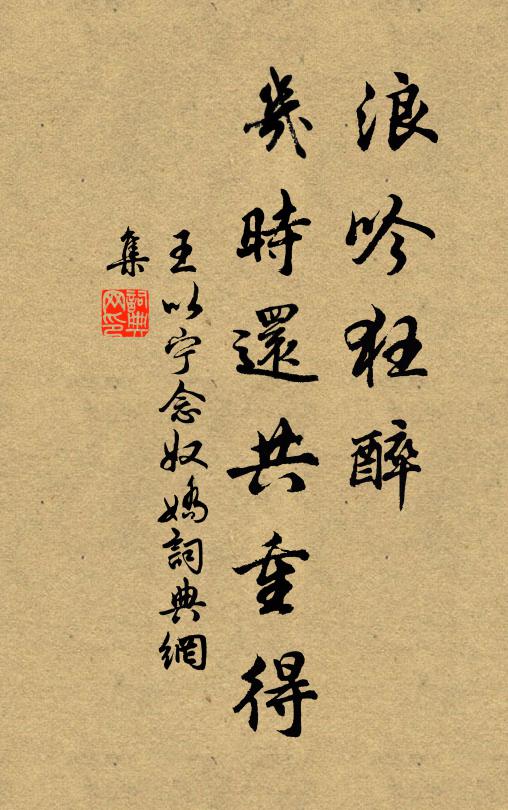 浪吟狂醉
幾時還共重得
王以宁念奴嬌詞典網
集
詞典
网印